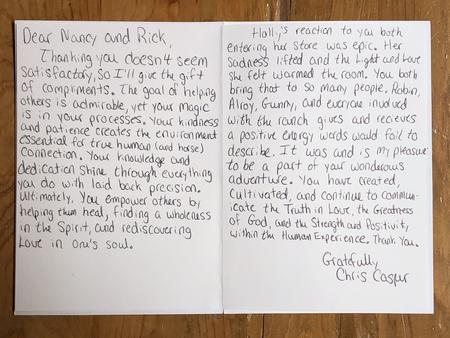 Dear Nancy and Rick,
Thanking you doesn't seem
satisfactory, so I'll give the gift
of compliments. The goal of helping
others is admirable, yet your magic
is in your processes. Your kindness
and patience creates the environment
essential for true human (and horse)
connection. Your knowledge and
dedication shine through everything
you do with laid back precision.
Ultimately, You empower others by
helping them heal, finding a wholeness
in the Spirit, and rediscovering
Love in one's soul.
Holly's reaction to you both
entering her store was epic. Her
sadness lifted and the Light and Love
she felt warmed the room. You both
bring that to so many people, Robin,
Alroy, Gunny, and everyone involved
with the ranch gives and recieves
a positive energy words would fail to
describe. It was and is my pleasure
to be a part of your wonderous
adventure. You have created,
cultivated, and continue to commun-
icate the Truth in Love, the Greatness
of God, and the Strength and Positivity
within the Human Experience. Thank You.
Gratefully,
Chris Casper